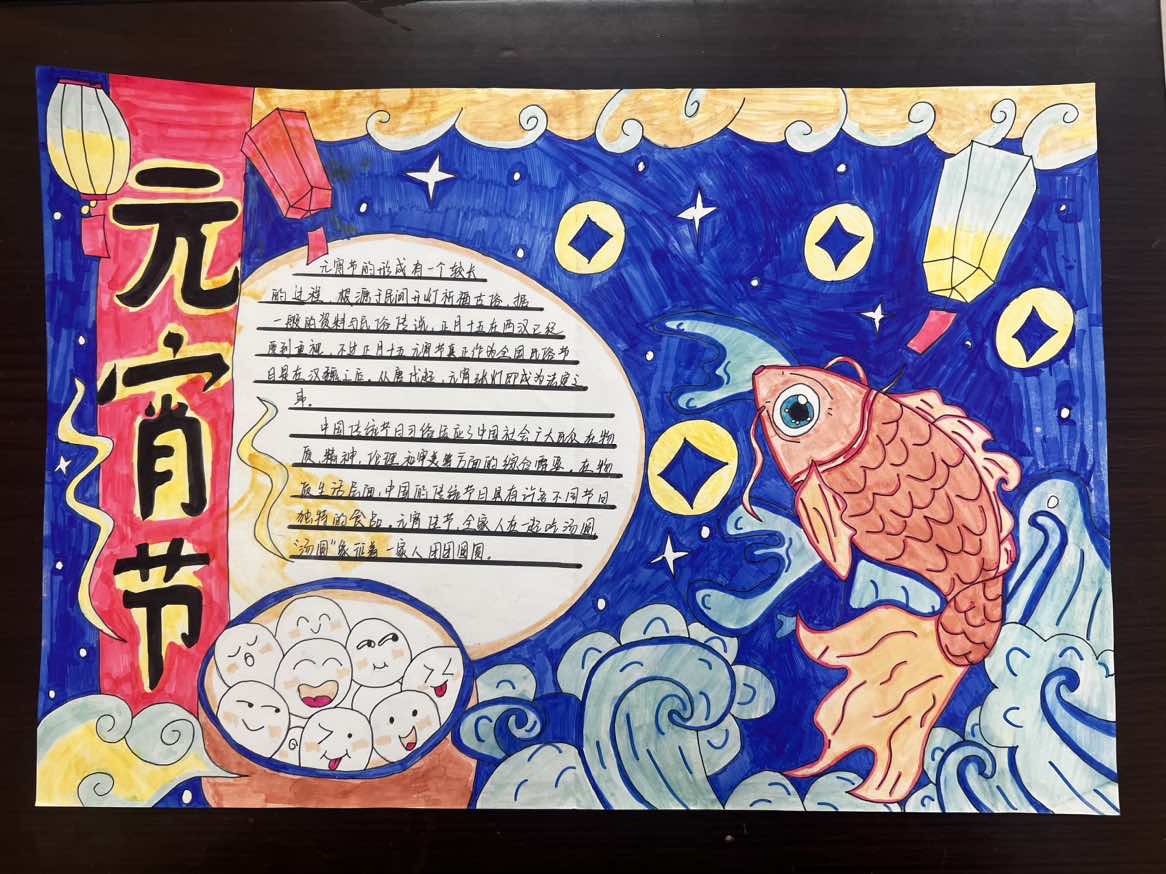 元宵节
元宵节的形成有一个较长
的过程，根源于民间开灯祈福古俗。据
一般的资料与民俗传说，正月十五在西汉已经
受到重视，不过正月十五元宵节真正作为全国民俗节
日是在汉魏之后。从唐代起，元宵张灯即成为法定之
事。
中国传统节日习俗适应了中国社会广大民众在物
质，精神，伦理和审美等方面的综合需要。在物
质生活层面，中国的传统节日具有许多不同节日
独特的食品。元宵佳节，全家人在一起吃汤圆，
“汤圆”象征着一家人团团圆圆。